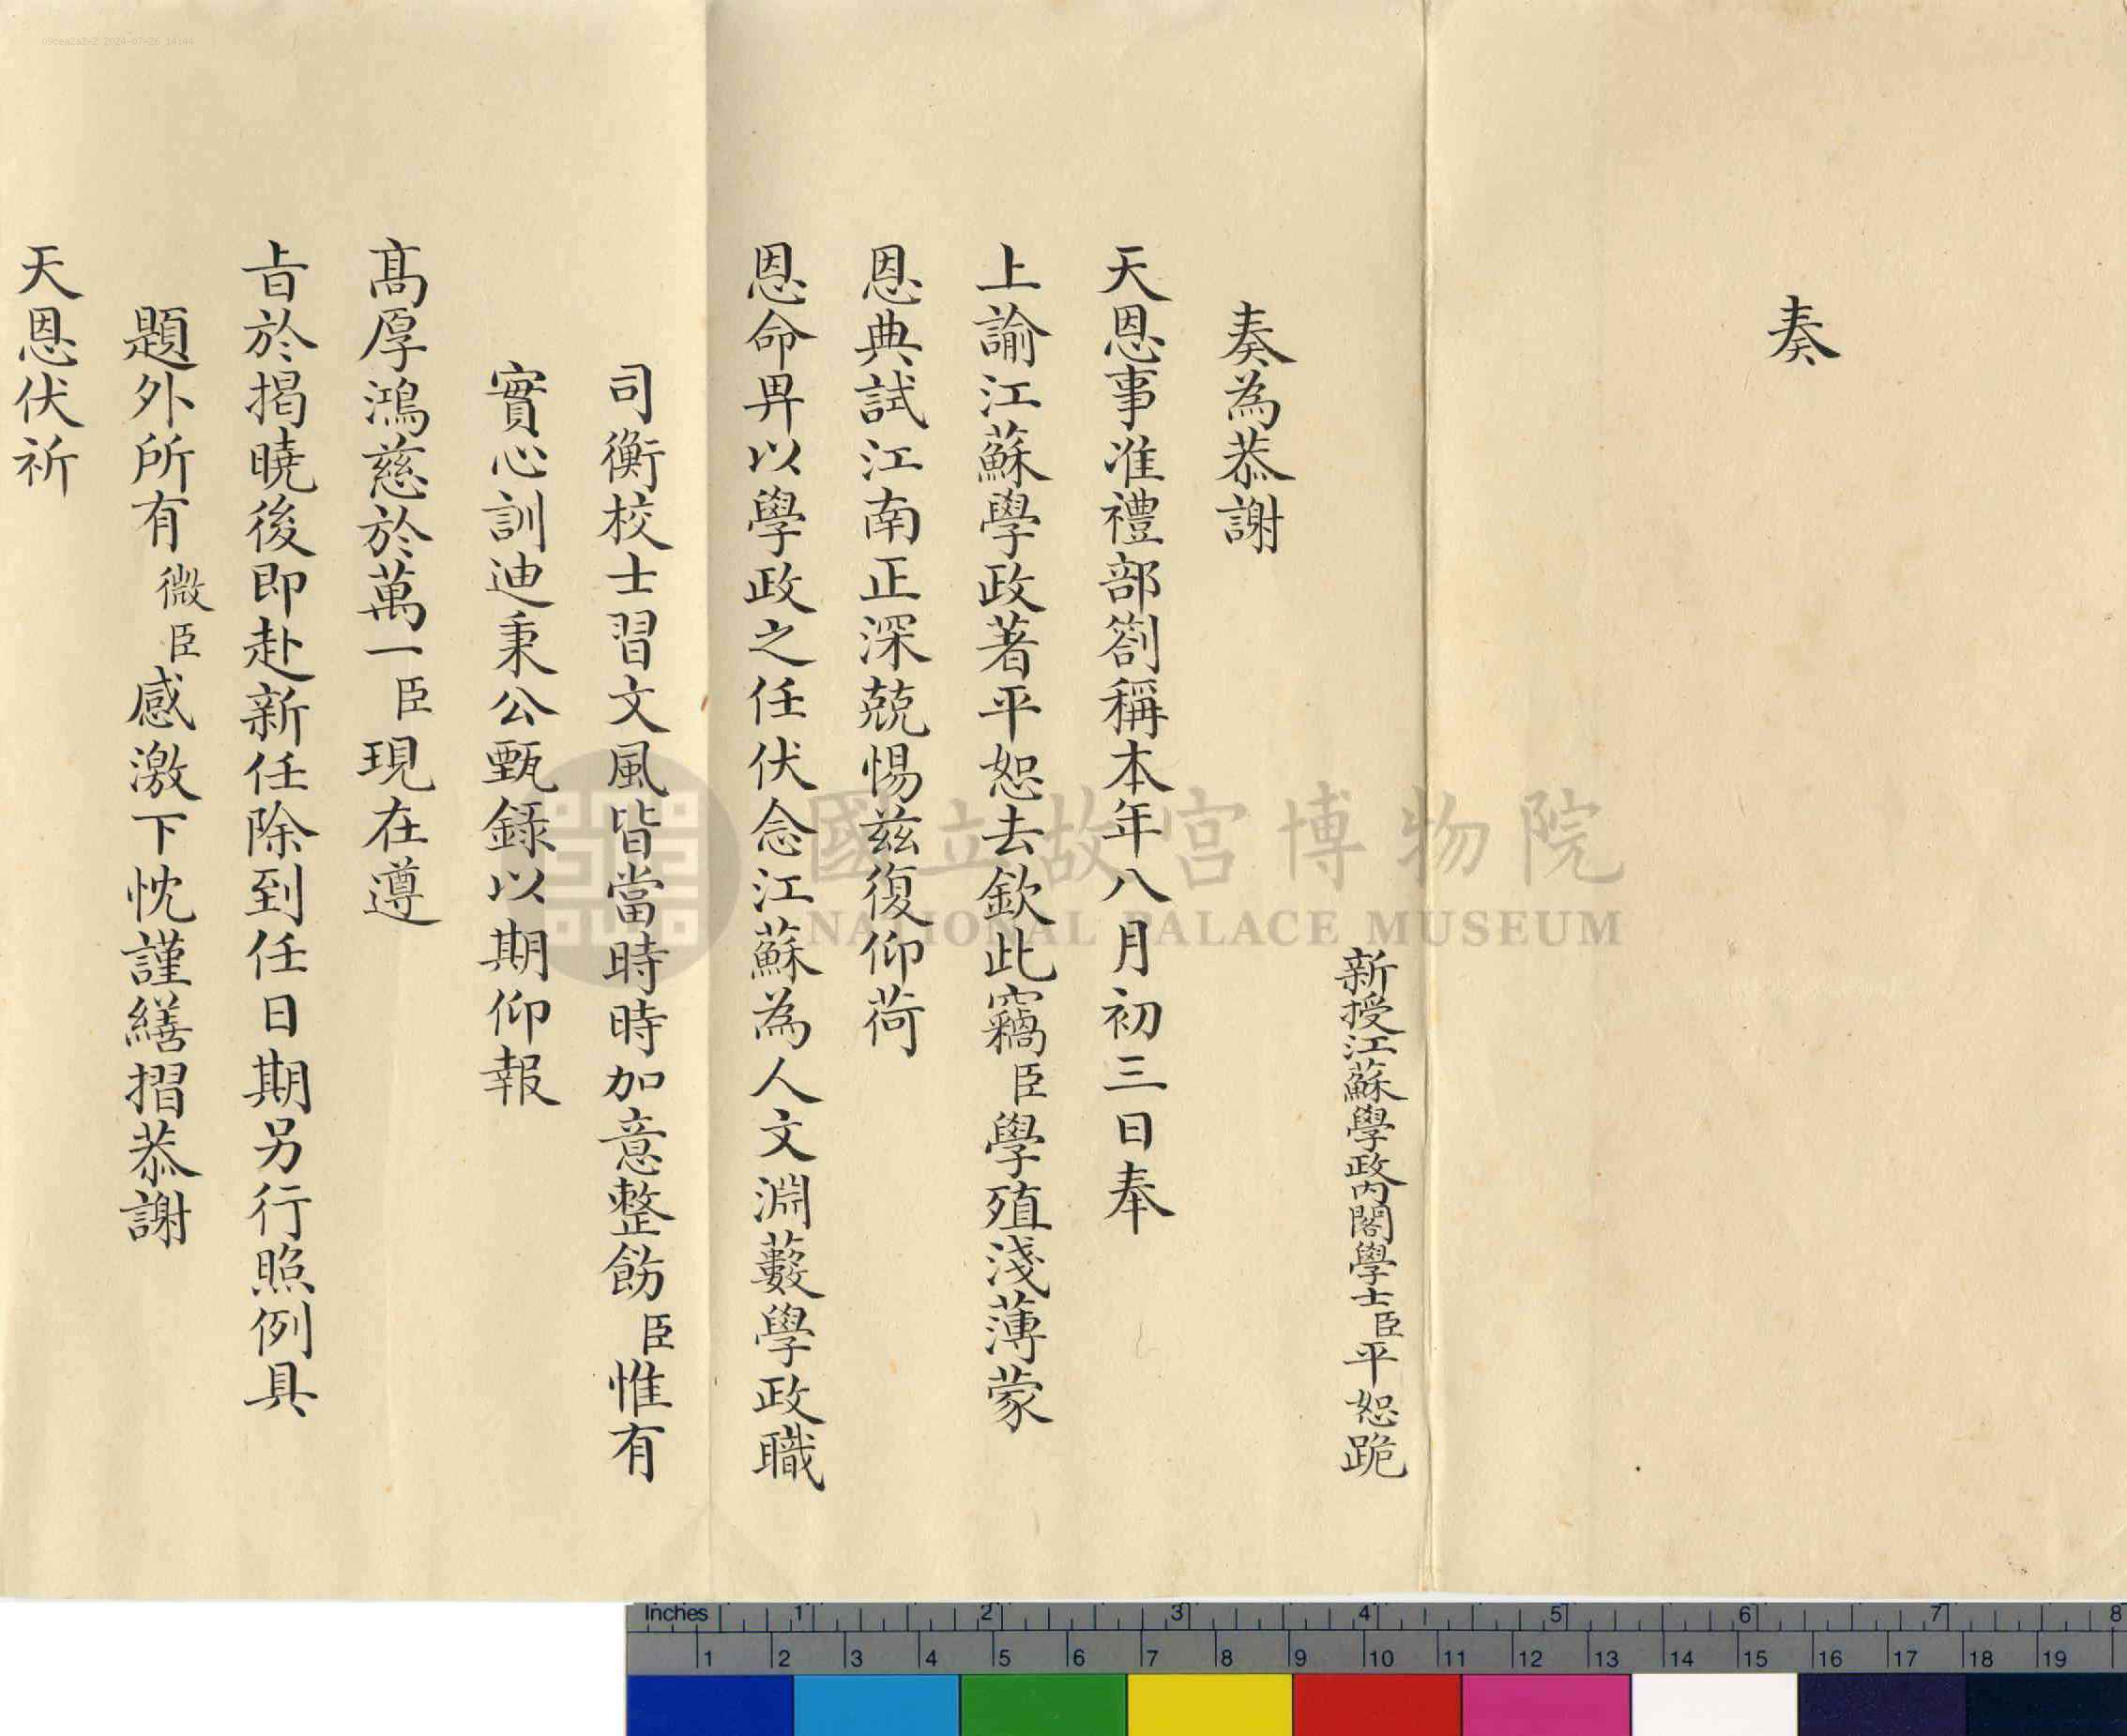 奏
新授江蘇學政內閣學士臣平恕跪
奏為恭謝
天恩事准禮部劄稱本年八月初三日奉
上諭江蘇學政著平恕去欽此竊臣學殖淺薄蒙
恩典試江南正深兢惕茲復仰荷
恩命畀以學政之任伏念江蘇為人文淵藪學政職
司衡校士習文風皆當時時加意整飭臣惟有
實心訓迪秉公甄錄以期仰報
高厚鴻慈於萬一臣現在遵
旨於揭曉後即赴新任除到任日期另行照例具
題外所有微臣感激下忱謹繕摺恭謝
天恩伏祈
國立故宮博物院
NATIONAL PALACE MUSEUM
09cea2a2-2 2024-07-26 14:44
Inches 1 2 3 4 5 6 7 8
1 2 3 4 5 6 7 8 9 10 11 12 13 14 15 16 17 18 19